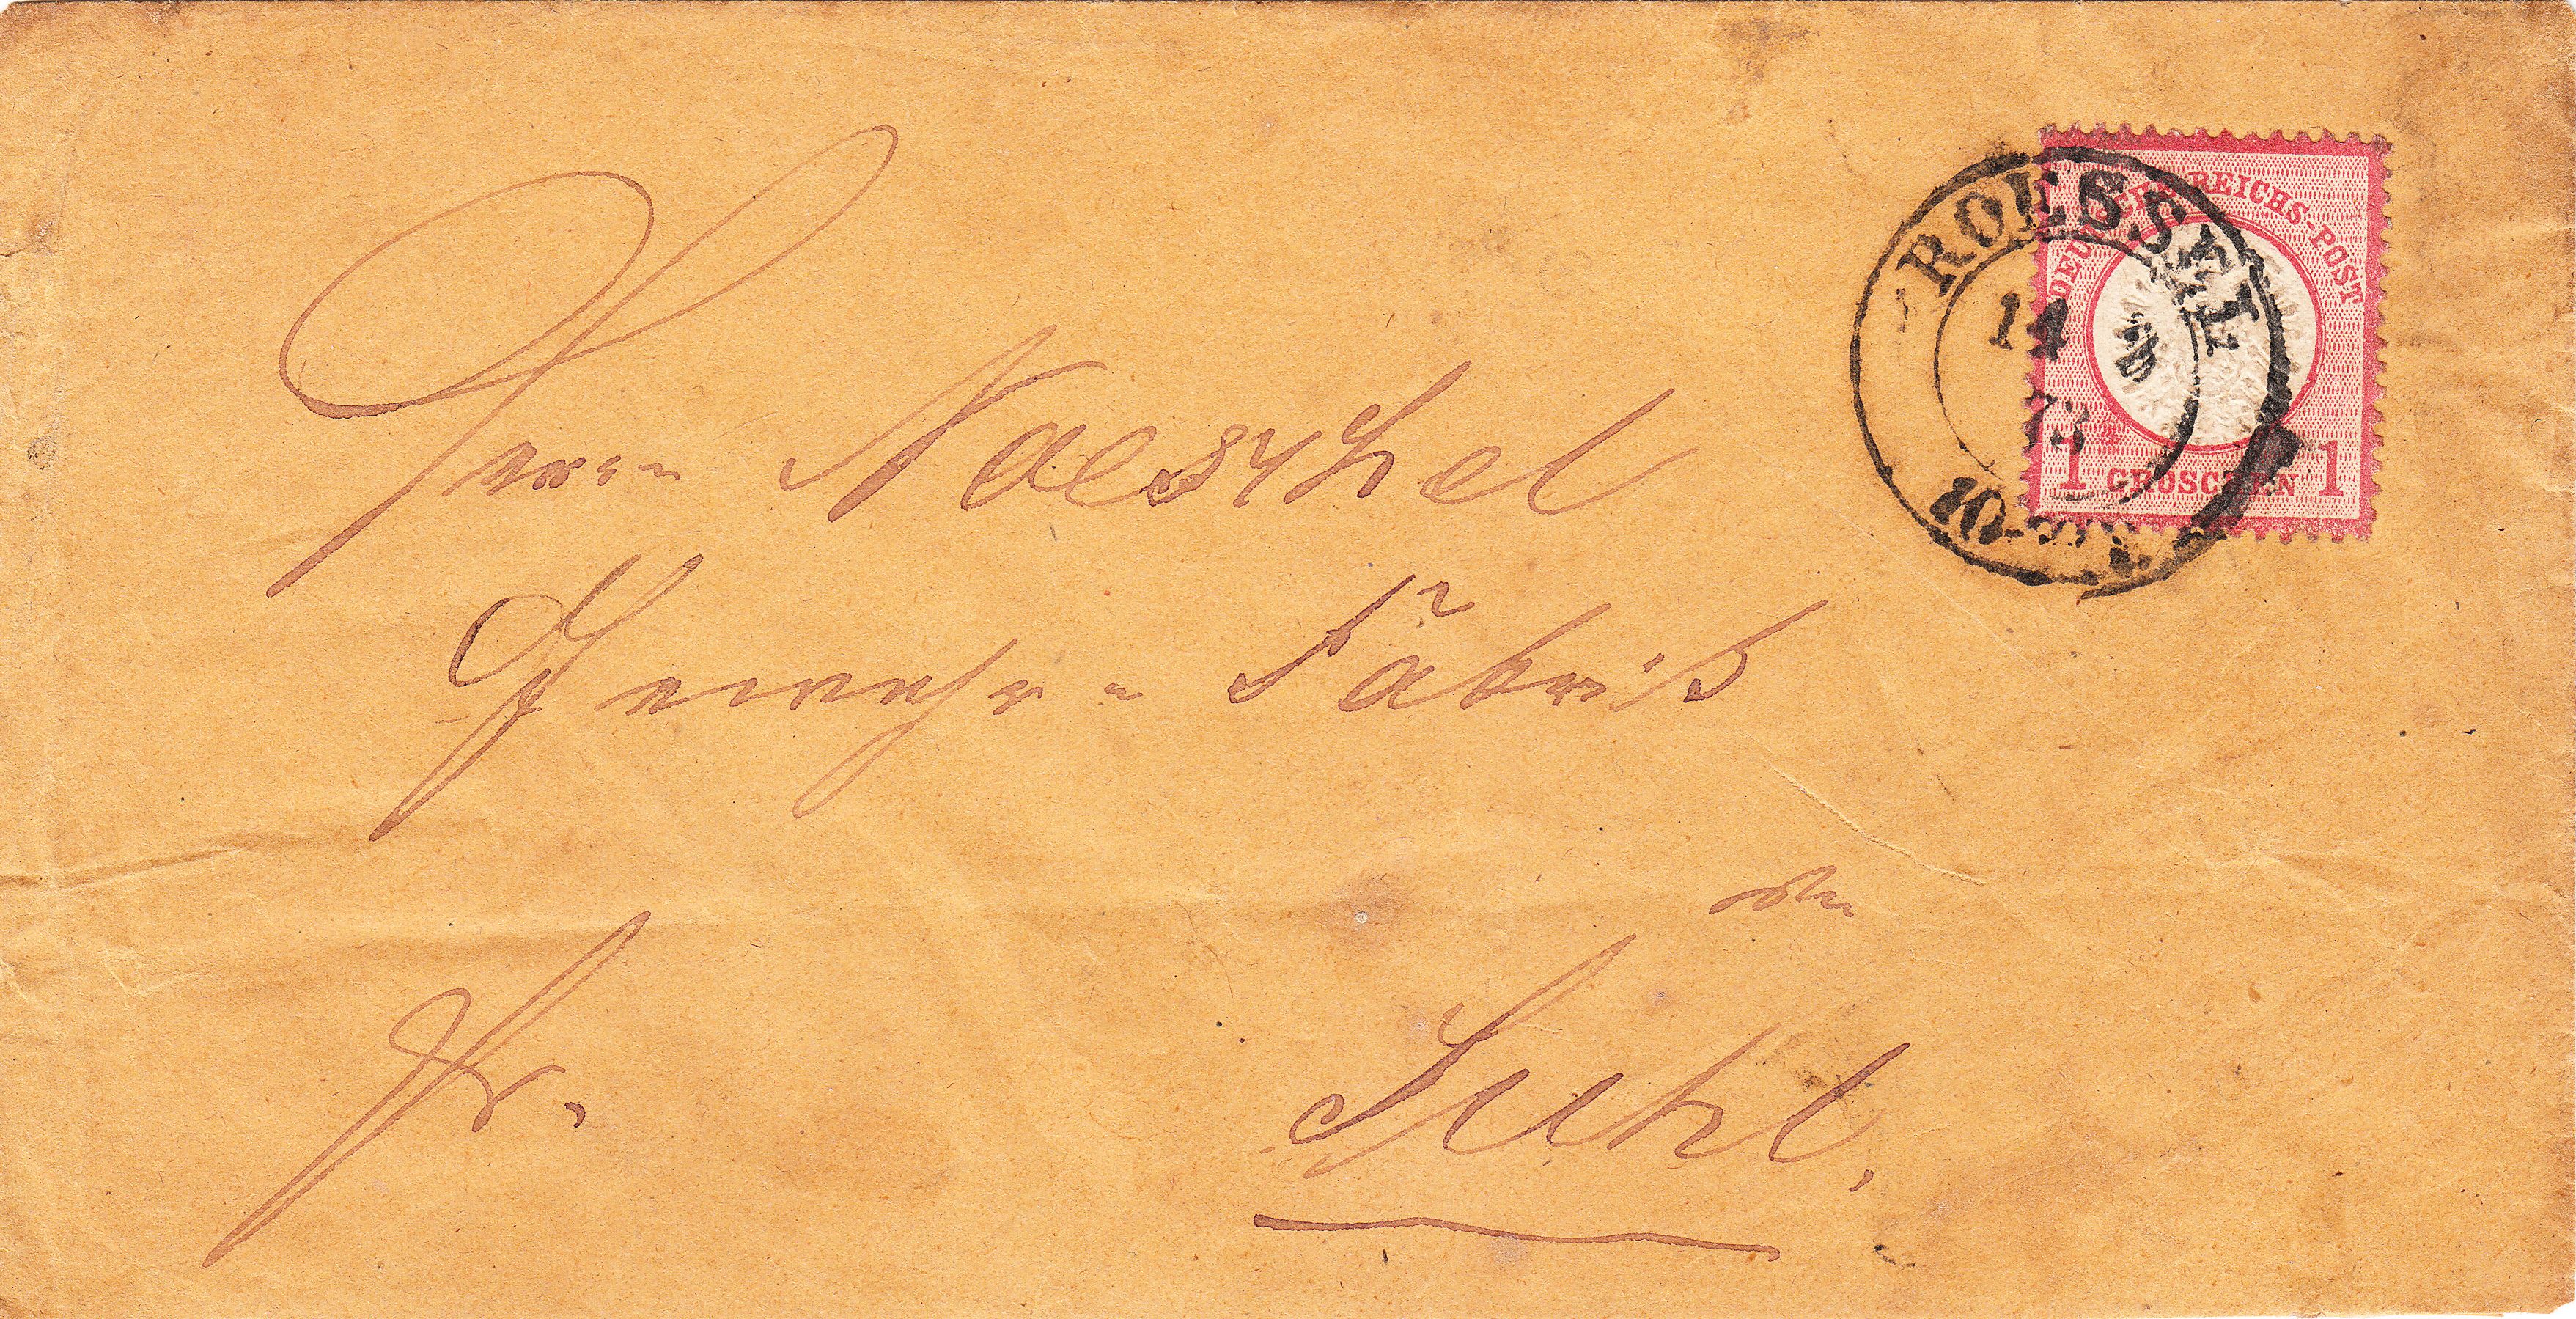 ROESSEL
14
73
DEUTSCHE REICHS-POST
1 GROSCHEN 1
Herrn Naeschel
Gewehr-Fabrik
Fr.
Suhl.